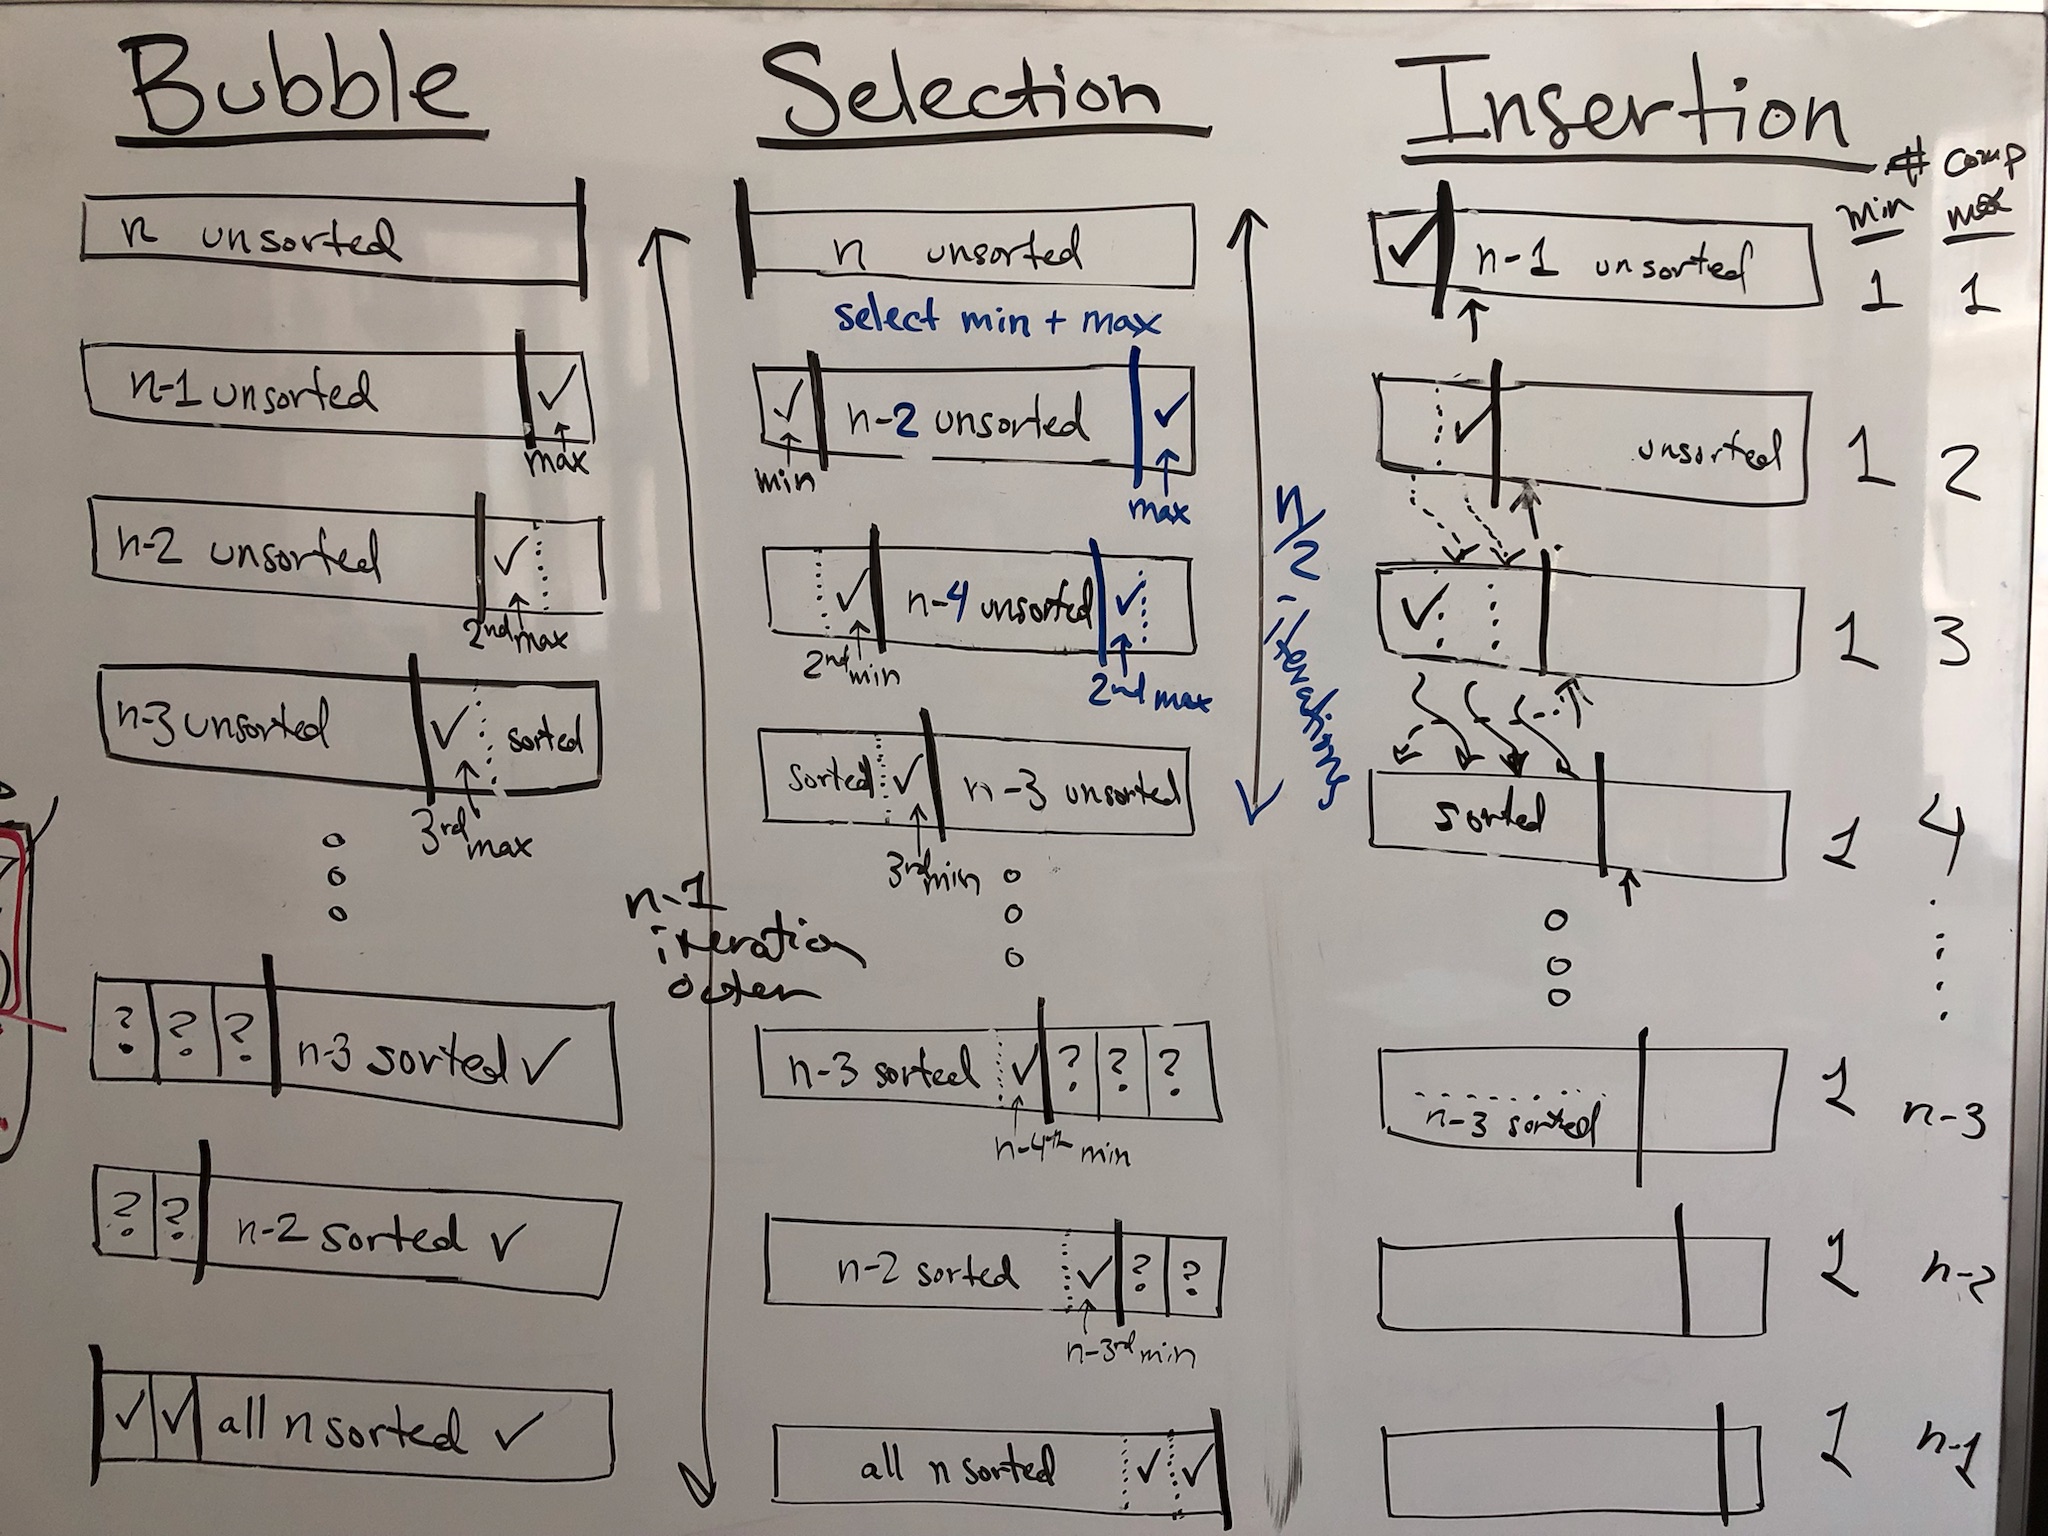 Bubble
n unsorted
n-1 unsorted
✓
max
n-2 unsorted
✓
2nd max
n-3 unsorted
✓
sorted
3rd max
? ? ? n-3 sorted ✓
? ? n-2 sorted ✓
✓ ✓ all n sorted ✓
n-1
iteration
Selection
n unsorted
select min + max
✓ n-2 unsorted ✓
min
max
✓ n-4 unsorted ✓
2nd min
2nd max
sorted ✓ n-3 unsorted
3rd min
n-3 sorted ✓ ? ? ?
n-4th min
n-2 sorted ✓ ? ?
n-3rd min
all n sorted ✓ ✓
n/2 iterations
Insertion
# comp
min max
✓ n-1 unsorted 1 1
✓ unsorted 1 2
✓ 1 3
sorted 1 4
n-3 sorted 1 n-3
1 n-2
1 n-1